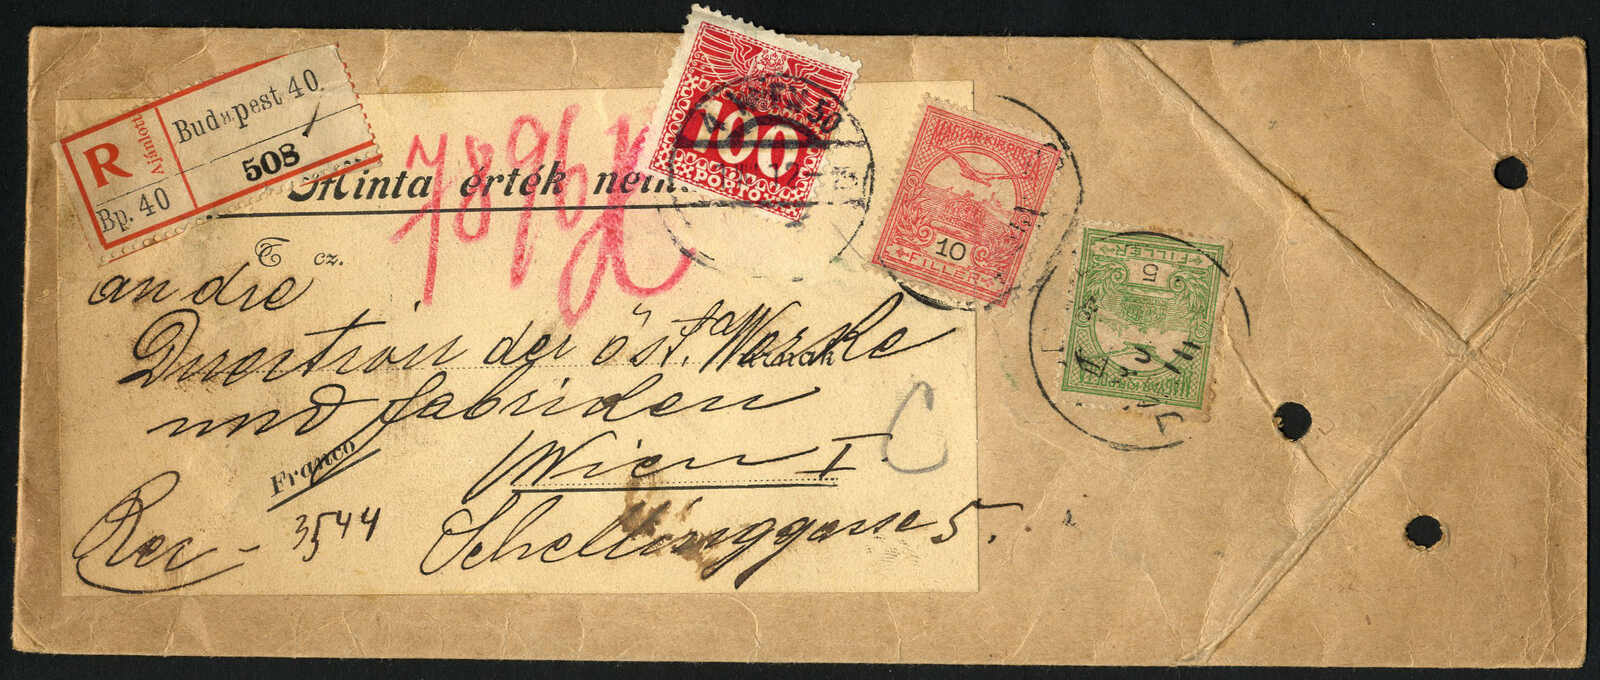 R Ajánlott Budapest 40.
Bp. 40 508
Minta érték
7896
T. cz.
an die
Direction der öst. Werke
Urnak
und Fabriken
Franco
Wien I.
C
Rec - 3544
Schellinggasse 5.
100
PORTO
WIEN 50
MAGYAR KIR. POSTA
10
FILLÉR
FILLÉR
5
MAGYAR KIR. POSTA